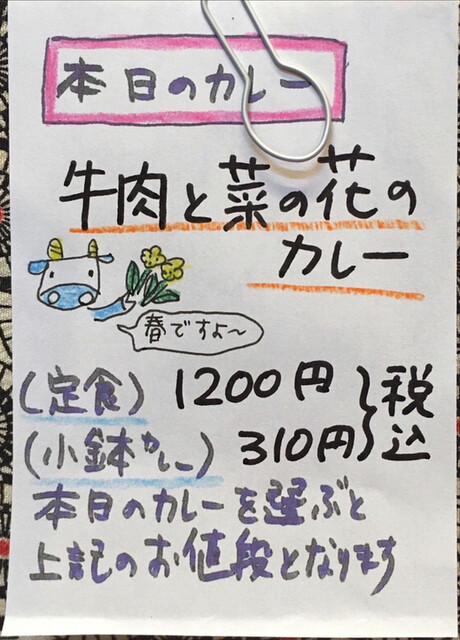 本日のカレー
牛肉と菜の花の
カレー
春ですよ~
(定食) 1200円
(小鉢カレー) 310円}税込
本日のカレーを選ぶと
上記のお値段となります